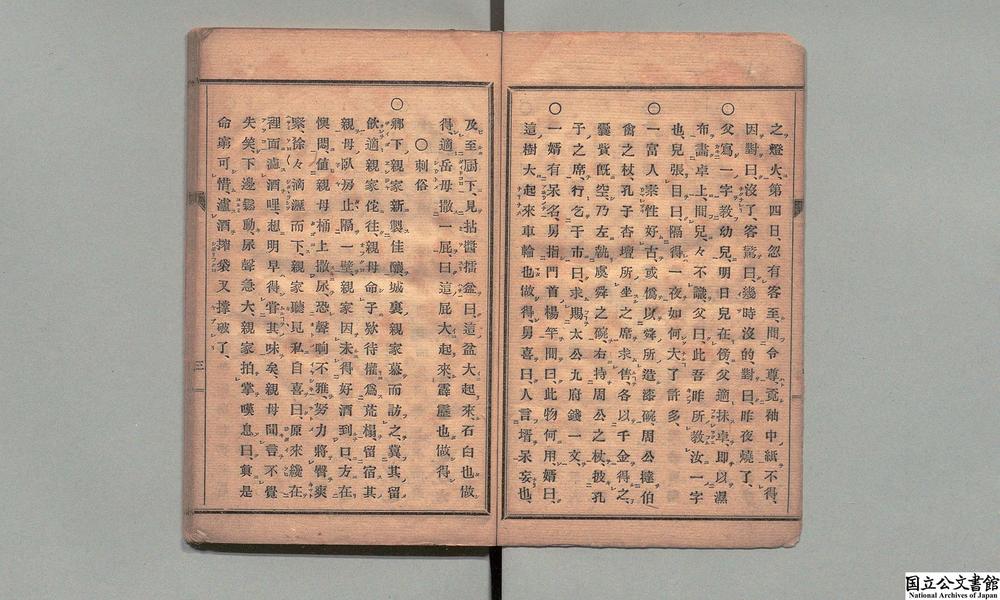 之燈火、第四日、忽有客至、問令尊、覓袖中紙不得、
因對曰、沒了、客驚曰、幾時沒的、對曰、昨夜燒了、
〇父寫一字敎幼兒、明日兒在傍、父適抹卓、卽以濕
布畫卓上、問兒、々不識、父曰、此吾昨所敎汝一字
也、兒張目曰、隔得一夜、如何大了許多、
〇一富人素性好古、或僞以舜所造漆碗、周公撻伯
禽之杖、孔子杏壇所坐之席求售、各以千金得之、
囊資旣空、乃左執虞舜之碗、右持周公之杖、披孔
子之席、行乞于市曰、求賜太公九府錢一文、
〇一婿有呆名、舅指門首楊竿問曰、此物何用、婿曰、
這樹大起來、車輪也做得、舅喜曰、人言壻呆妄也、
及至厨下、見拈醬擂盆曰、這盆大起來、石臼也做
得、適岳母撒一屁、曰這屁大起來、霹靂也做得
〇刺俗
〇鄕下親家新製佳釀、城裏親家慕而訪之、冀其留
飮、適親家侘往、親母命子欵待、權爲荒榻、留宿其
親母臥房、止隔一壁、親家因未得好酒到口、方在
懊悶、値親母桶上撒尿、恐聲响不雅、努力將臀夾
緊、徐々滴瀝而下、親家聽見、私自喜曰、原來纔在
裡面濾酒哩、想明早得嘗其味矣、親母聞言、不覺
失笑、下邊鬆動、尿聲急大、親家拍掌嘆息曰、眞是
命窮可惜、濾酒搾袋又撑破了、
三
国立公文書館
National Archives of Japan